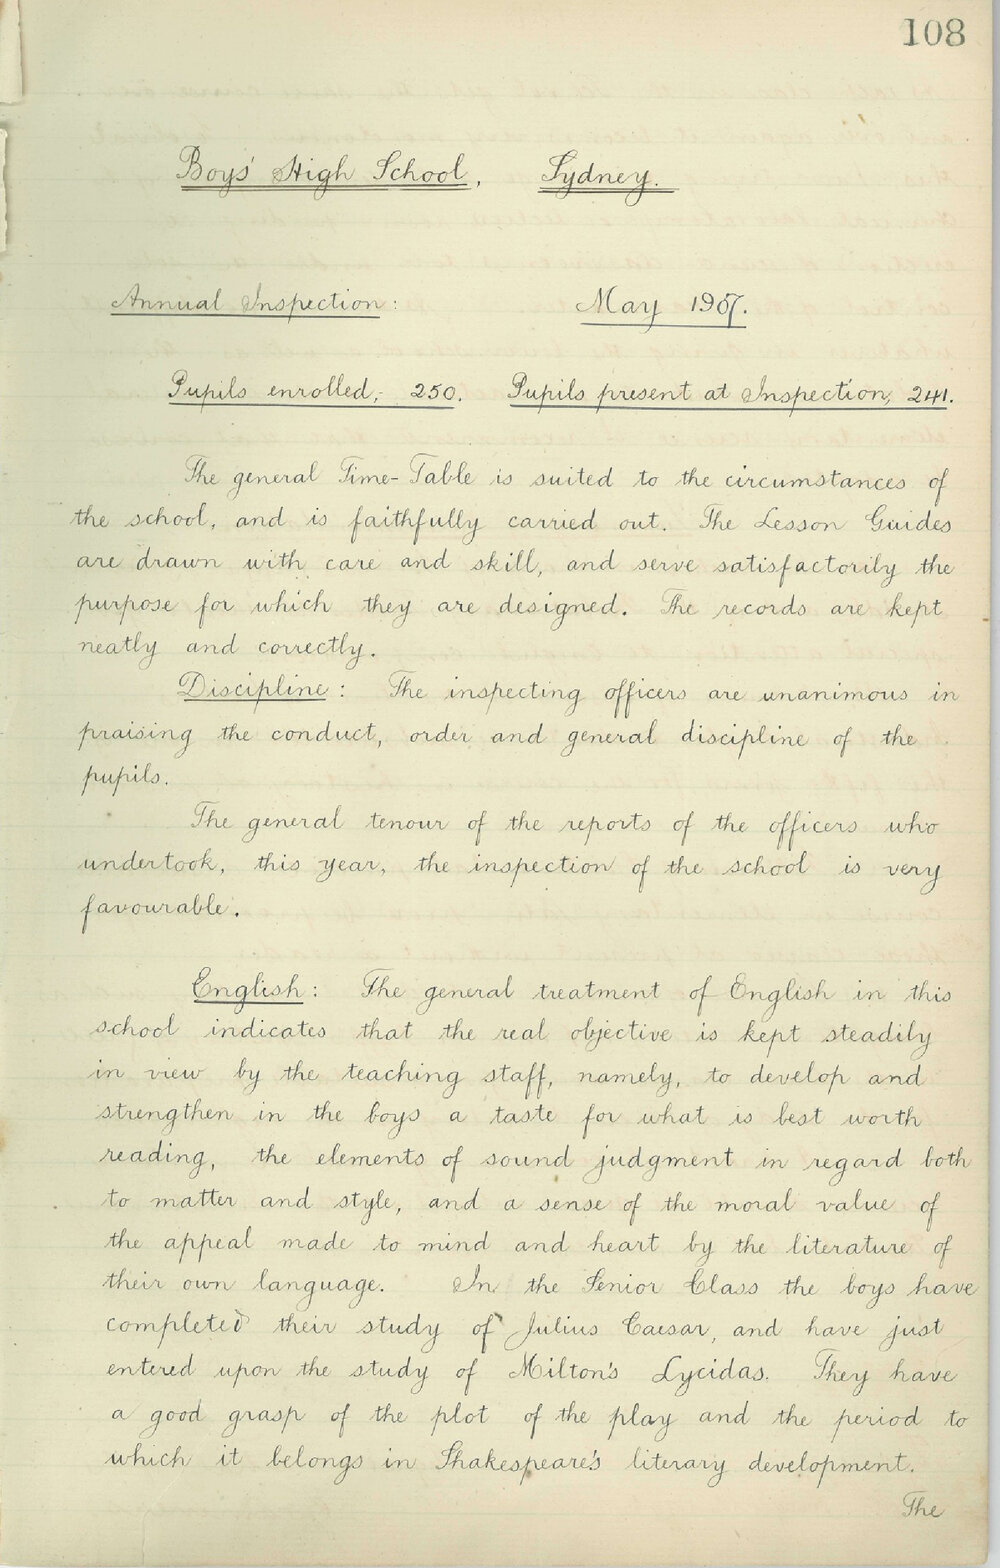 108
Boys' High School, Sydney.
Annual Inspection: May 1907.
Pupils enrolled, 250. Pupils present at Inspection, 241.
The general Time-Table is suited to the circumstances of
the school, and is faithfully carried out. The Lesson Guides
are drawn with care and skill, and serve satisfactorily the
purpose for which they are designed. The records are kept
neatly and correctly.
Discipline: The inspecting officers are unanimous in
praising the conduct, order and general discipline of the
pupils.
The general tenour of the reports of the officers who
undertook, this year, the inspection of the school is very
favourable.
English: The general treatment of English in this
school indicates that the real objective is kept steadily
in view by the teaching staff, namely, to develop and
strengthen in the boys a taste for what is best worth
reading, the elements of sound judgment in regard both
to matter and style, and a sense of the moral value of
the appeal made to mind and heart by the literature of
their own language. In the Senior Class the boys have
completed their study of Julius Caesar, and have just
entered upon the study of Milton's Lycidas. They have
a good grasp of the plot of the play and the period to
which it belongs in Shakespeare's literary development.
The